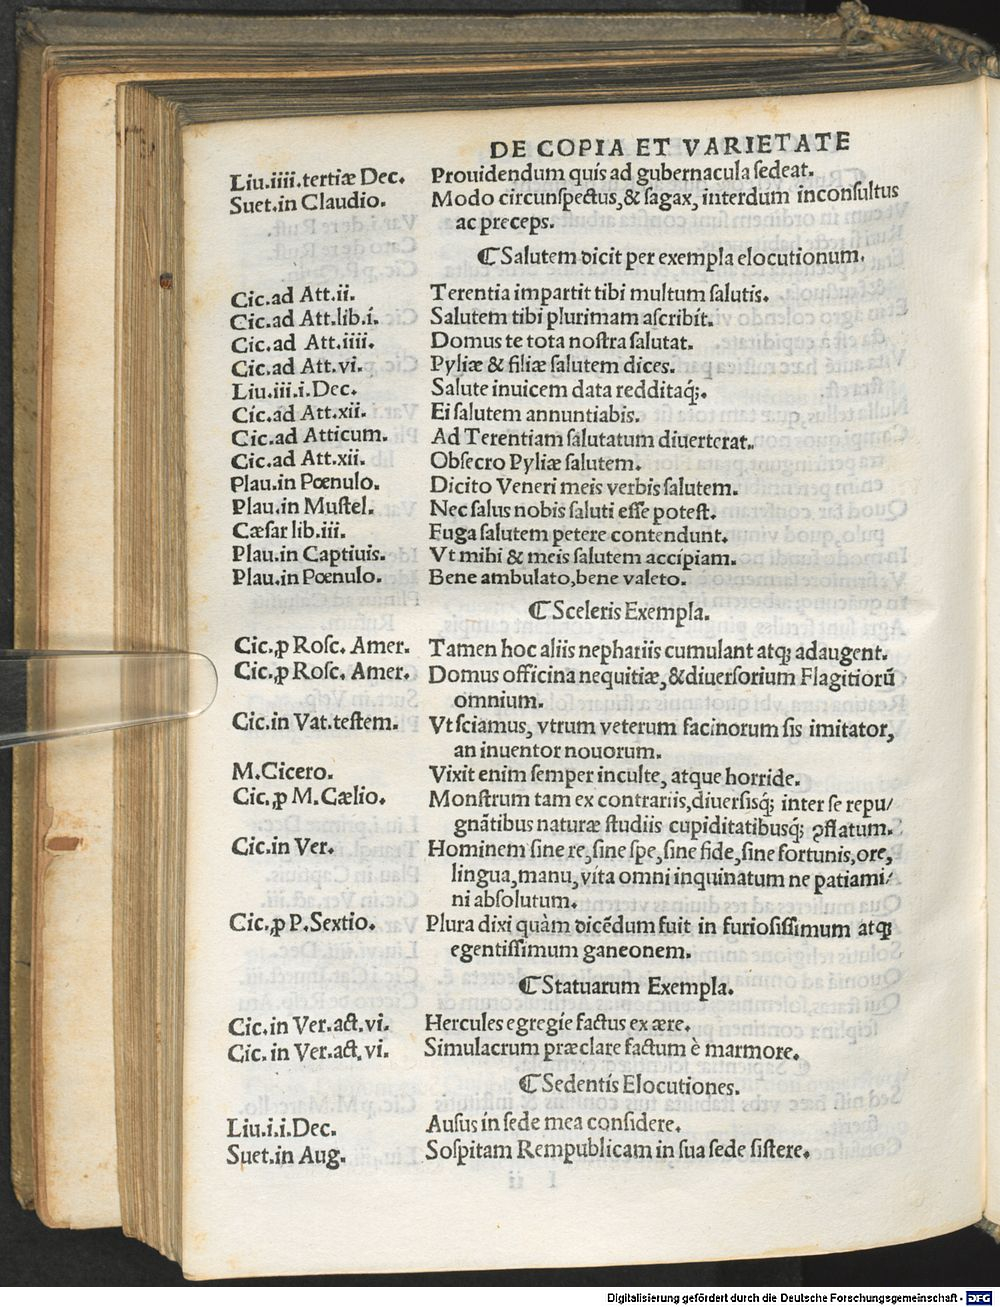 DE COPIA ET VARIETATE
Liu.iiii.tertiæ Dec. Prouidendum quis ad gubernacula ſedeat.
Suet.in Claudio. Modo circunſpectus,& ſagax, interdum inconſultus
ac preceps.
⁋Salutem dicit per exempla elocutionum.
Cic.ad Att.ii. Terentia impartit tibi multum ſalutis.
Cic.ad Att.lib.i. Salutem tibi plurimam aſcribit.
Cic.ad Att.iiii. Domus te tota noſtra ſalutat.
Cic.ad Att.vi. Pyliæ & filiæ ſalutem dices.
Liu.iii.i.Dec. Salute inuicem data redditaq;.
Cic.ad Att.xii. Ei ſalutem annuntiabis.
Cic.ad Atticum. Ad Terentiam ſalutatum diuerterat.
Cic.ad Att.xii. Obſecro Pyliæ ſalutem.
Plau.in Pœnulo. Dicito Veneri meis verbis ſalutem.
Plau.in Muſtel. Nec ſalus nobis ſaluti eſſe poteſt.
Cæſar lib.iii. Fuga ſalutem petere contendunt.
Plau.in Captiuis. Vt mihi & meis ſalutem accipiam.
Plau.in Pœnulo. Bene ambulato,bene valeto.
⁋Sceleris Exempla.
Cic.ꝓ Roſc. Amer. Tamen hoc aliis nephariis cumulant atq; adaugent.
Cic.ꝓ Roſc. Amer. Domus officina nequitiæ,&diuerſorium Flagitiorũ
omnium.
Cic.in Vat.teſtem. Vt ſciamus, vtrum veterum facinorum ſis imitator,
an inuentor nouorum.
M.Cicero. Vixit enim ſemper inculte, atque horride.
Cic.ꝓ M.Cælio. Monſtrum tam ex contrariis,diuerſisq; inter ſe repu/
gnãtibus naturæ ſtudiis cupiditatibusq; ꝯflatum.
Cic.in Ver. Hominem ſine re,ſine ſpe,ſine fide,ſine fortunis,ore,
lingua,manu,vita omni inquinatum ne patiami/
ni abſolutum.
Cic.ꝓ P.Sextio. Plura dixi quàm dicẽdum fuit in furioſiſſimum atq;
egentiſſimum ganeonem.
⁋Statuarum Exempla.
Cic.in Ver.act.vi. Hercules egregie factus ex ære.
Cic. in Ver.act.vi. Simulacrum præclare factum è marmore.
⁋Sedentis Elocutiones.
Liu.i.i.Dec. Auſus in ſede mea conſidere.
Suet.in Aug. Soſpitam Rempublicam in ſua ſede ſiſtere.
Digitalisierung gefördert durch die Deutsche Forschungsgemeinschaft - DFG